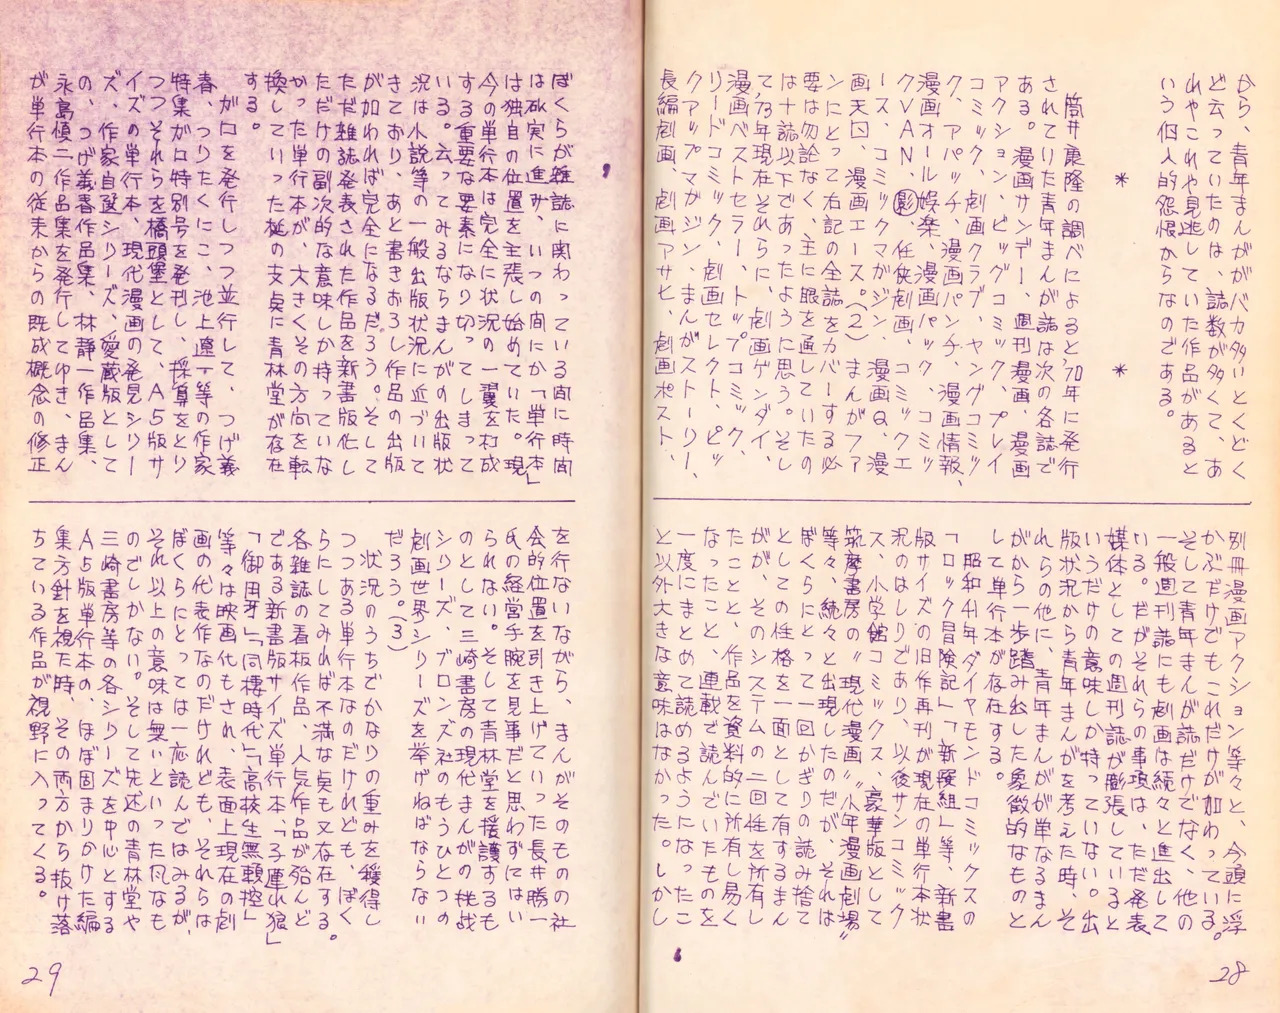 から、青年まんががバカ多いとくどく
ど云っていたのは、誌数が多くて、あ
れやこれや見逃していた作品があると
いう個人的怨恨からなのである。
＊　＊
筒井康隆の調べによると70年に発行
されていた青年まんが誌は次の各誌で
ある。漫画サンデー、週刊漫画、漫画
アクション、ビッグコミック、プレイ
コミック、劇画クラブ、ヤングコミッ
ク、アパッチ、漫画パンチ、漫画情報、
漫画オール娯楽、漫画パック、コミッ
クVAN、影、任侠劇画、コミックエ
ース、コミックマガジン、漫画Q、漫
画天国、漫画エース。(2)まんがファ
ンにとって右記の全誌をカバーする必
要は勿論なく、主に眼を通していたの
は十誌以下であったように思う。そし
て、73年現在それらに、劇画ゲンダイ、
漫画ベストセラー、トップコミック、
リードコミック、劇画セレクト、ピッ
クアップマガジン、まんがストーリー、
長編劇画、劇画アサヒ、劇画ポスト、
別冊漫画アクション等々と、今頭に浮
かぶだけでもこれだけが加わっている。
そして青年まんが誌だけでなく、他の
一般週刊誌にも劇画は続々と進出して
いる。だがそれらの事項は、ただ発表
媒体としての週刊誌が膨張していると
いうだけの意味しか持っていない。出
版状況から青年まんがを考えた時、そ
れらの他に、青年まんがが単なるまん
がから一歩踏み出した象徴的なものと
して単行本が存在する。
昭和41年ダイヤモンドコミックスの
「ロック冒険記」「新撰組」等、新書
版サイズの旧作再刊が現在の単行本状
況のはしりであり、以後サンコミック
ス、小学館コミックス、豪華版として
筑摩書房の〝現代漫画〟〝少年漫画劇場〟
等々、続々と出現したのだが、それは
ぼくらにとって一回かぎりの読み捨て
としての性格を一面として有するまん
がが、そのシステムの二回性を所有し
たことと、作品を資料的に所有し易く
なったこと、連載で読んでいたものを
一度にまとめて読めるようになったこ
と以外大きな意味はなかった。しかし
28
ぼくらが雑誌に関わっている間に時間
は砿実に進み、いつの間にか「単行本」
は独自の位置を主張し始めていた。現
今の単行本は完全に状況の一翼を打成
する重要な要素になり切ってしまって
いる。云ってみるならまんがの出版状
況は小説等の一般出版状況に近づいて
きており、あと書きおろし作品の出版
が加われば完全になるだろう。そして
ただ雑誌発表された作品を新書版化し
ただけの副次的な意味しか持っていな
かった単行本が、大きくその方向を転
換していった梃の支点に青林堂が存在
する。
ガロを発行しつつ並行して、つげ義
春、つりたくにこ、池上遼一等の作家
特集ガロ特別号を発刊し、採算をとり
つつそれらを橋頭堡として、A5版サ
イズの単行本、現代漫画の発見シリー
ズ、作家自選シリーズ、愛蔵版として
の、つげ義春作品集、林静一作品集、
永島慎二作品集を発行してゆき、まん
が単行本の従来からの既成概念の修正
を行ないながら、まんがそのものの社
会的位置を引き上げていった長井勝一
氏の経営手腕を見事だと思わずにはい
られない。そして青林堂を援護するも
のとして三崎書房の現代まんがの挑戦
シリーズ、ブロンズ社のもうひとつの
劇画世界シリーズを挙げねばならない
だろう。(3)
状況のうちでかなりの重みを獲得し
つつある単行本なのだけれども、ぼく
らにしてみれば不満な点も又存在する。
各雑誌の看板作品、人気作品が殆んど
である新書版サイズ単行本、「子連れ狼」
「御用牙」「同棲時代」「高校生無頼控」
等々は映画化もされ、表面上現在の劇
画の代表作なのだけれども、それらは
ぼくらにとっては一応読んではみるが、
それ以上の意味は無いといった風なも
のでしかない。そして先述の青林堂や
三崎書房等の各シリーズを中心とする
A5版単行本の、ほぼ固まりかけた編
集方針を視た時、その両方から抜け落
ちている作品が視野に入ってくる。
29